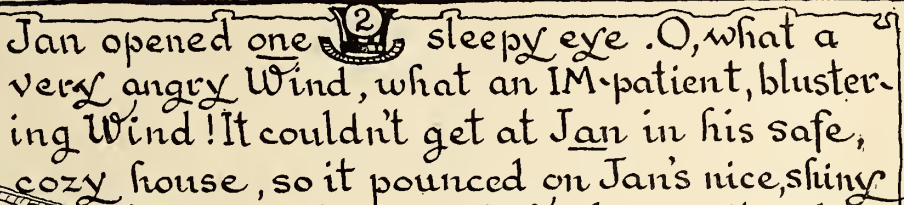 2
Jan opened one sleepy eye .O, what a
very angry Wind, what an IM-patient, bluster-
ing Wind! It couldn't get at Jan in his safe,
cozy house, so it pounced on Jan's nice, shiny